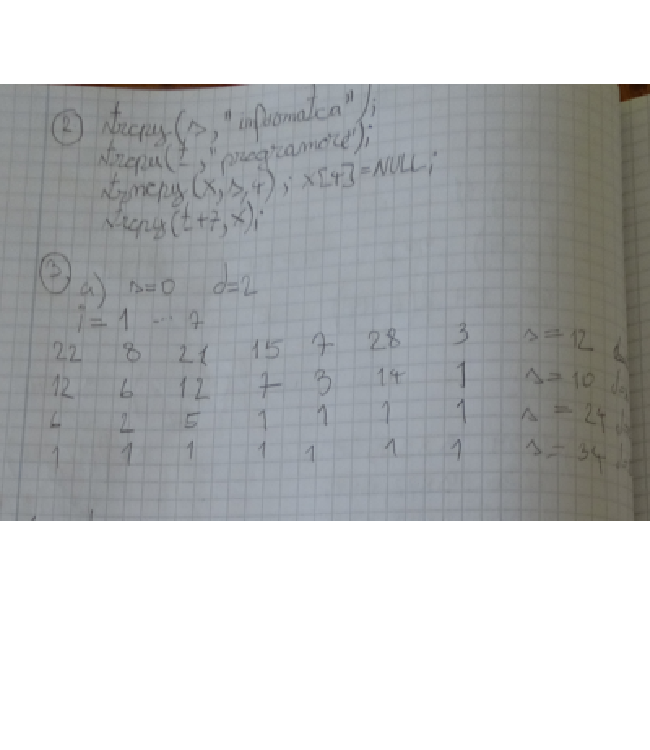 2 strcpy(s,"informatica");
strcpy(t,"programare");
strncpy(x,s,4); x[4]=NULL;
strcpy(t+7,x);
3 a) s=0 d=2
i=1 ... 7
22 8 21 15 7 28 3 s=12
12 6 12 7 3 14 1 s=10
6 2 5 1 1 1 1 s=24
1 1 1 1 1 1 1 s=34